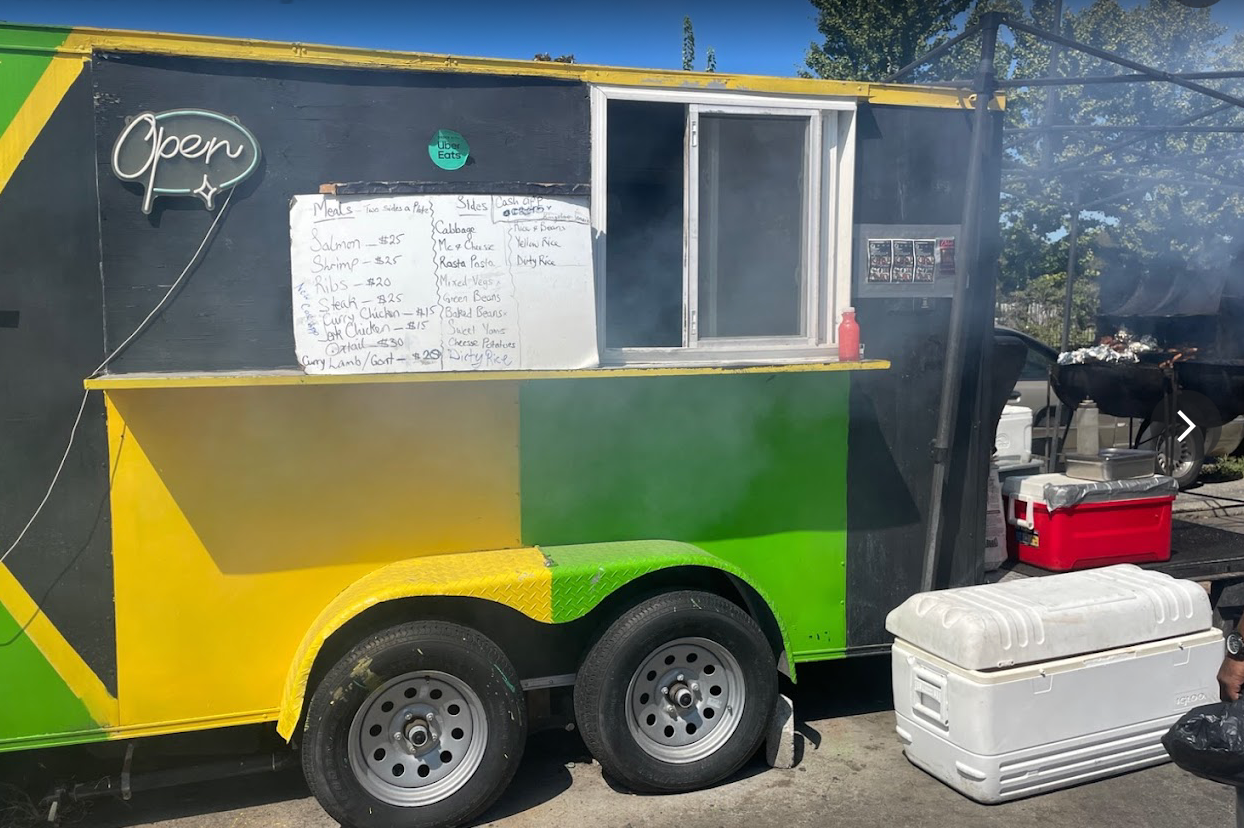 Open
Uber
Eats
Meals - Two sides a Plate
Salmon - $25
Shrimp - $25
Ribs - $20
Steak - $25
Curry Chicken - $15
Jerk Chicken - $15
Oxtail - $30
Curry Lamb/Goat - $20
Sides
Cabbage
Mc & Cheese
Rasta Pasta
Mixed Vegs
Green Beans
Baked Beans
Sweet Yams
Cheese Potatoes
Dirty Rice
Cash App
Rice & Beans
Yellow Rice
Dirty Rice
igloo